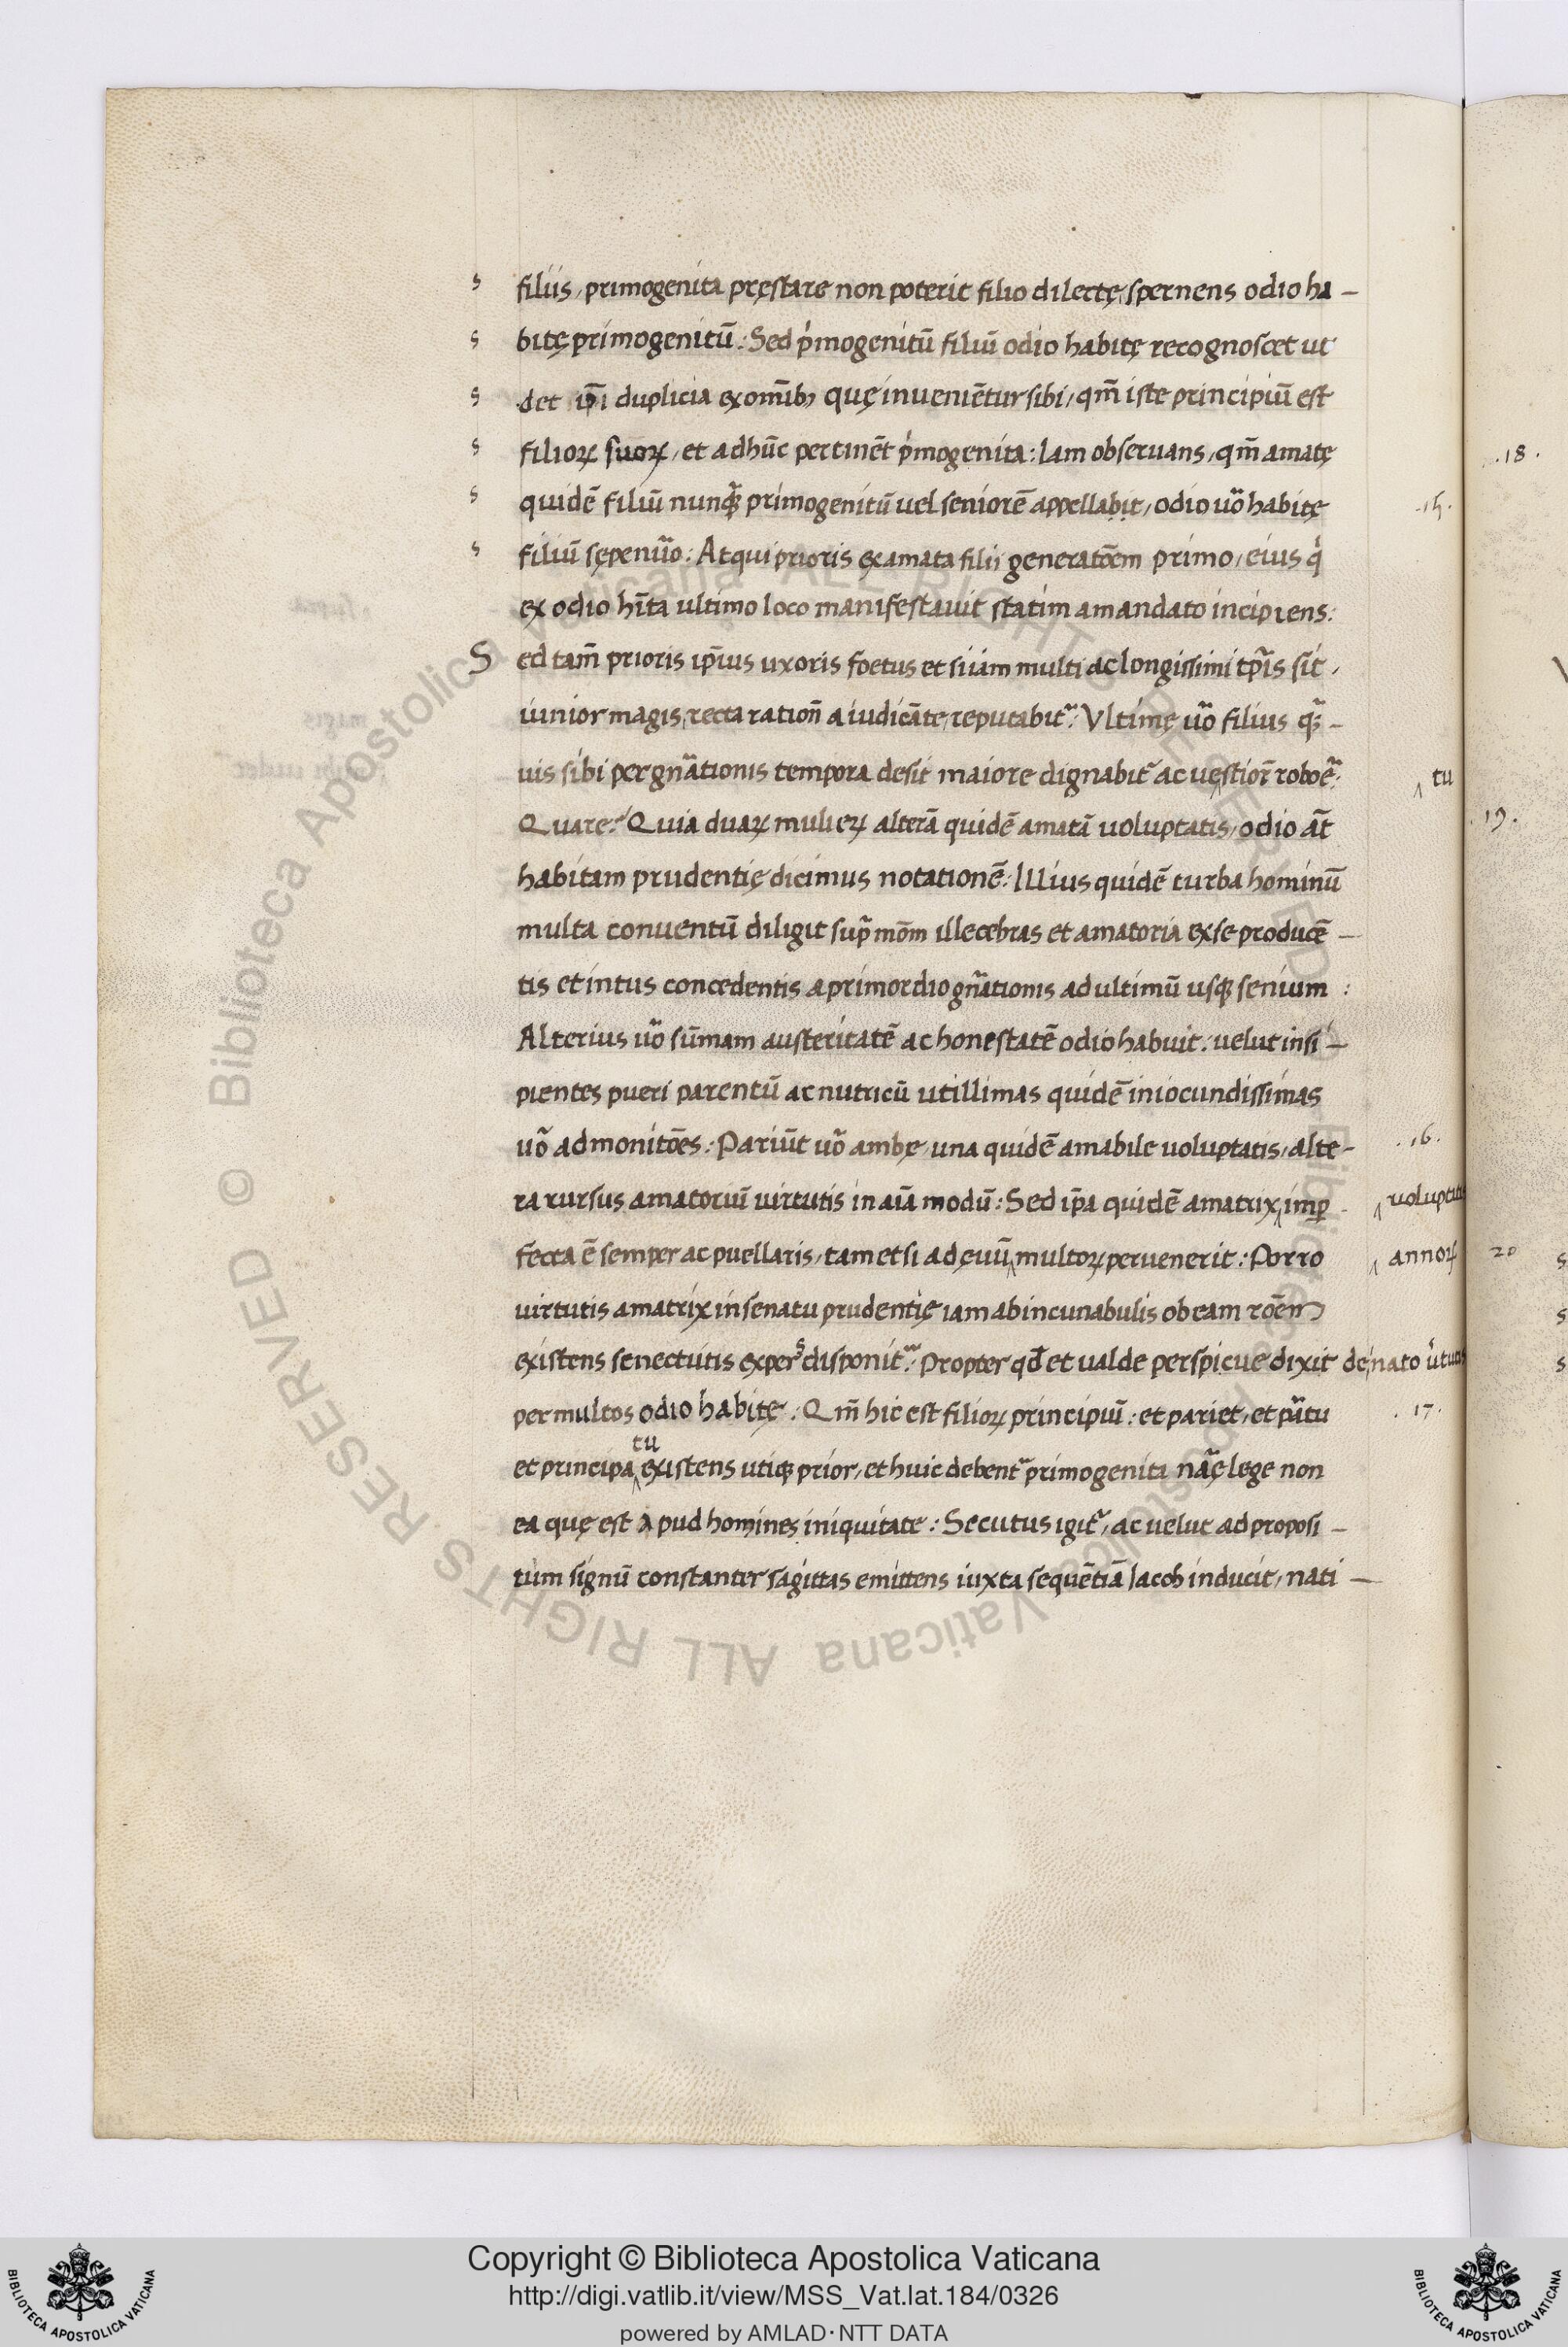 s filiis, primogenita pręstare non poterit filio dilectę, spernens odio ha–
s bitę primogenitū: Sed pⁱmogenitū filiū odio habitę recognoscet ut
s det ip̄i duplicia ex om̄ibꝫ quę inueniētur sibi, qm̄ iste principiū est
s filioꝝ suoꝝ, et adhūc pertinēt pⁱmogenita: Iam obseruans, qm̄ amatę
.18.
s quidē filiū nunꝙᷓ primogenitū uel seniorē appellabit, odio uo͂ habitę
.15.
s filiū sępenuo͂: Atqui prioris ex amata filii generatōem primo, eius qⁱ
ex odio hīta ultimo loco manifestauit statim a mandato incipiens:
Sed tam̄ prioris ip̄ius uxoris foetus etsi iam multi ac longissimi tp̄is sit,
iunior magis, recta ration̄ a iudicāte, reputabit᷑: Vltimę uo͂ filius qᷓ–
uis sibi per gn̄ationis tempora desit maiore dignabit᷑ ac ue‸stior̄ roboē:
‸ tu
Quare? Quia duaꝝ mulieꝝ alterā quidē amatā uoluptatis, odio āt
19.
habitam prudentię dicimus notationē: Illius quidē turba hominū
multa conuentū diligit sup̄ mōm illecebras et amatoria ex se producē–
tis et intus concedentis a primordio gn̄ationis ad ultimū usqꝫ senium:
Alterius uo͂ sūmam austeritatē ac honestatē odio habuit: uelut insi–
pientes pueri parentū ac nutricū utillimas quidē iniocundissimas
uo͂ admonitōes: Pariūt uo͂ ambę, una quidē amabile uoluptatis, alte–
.16.
ra rursus amatoriū uirtutis in aīa modū: Sed ip̄a quidē amatrix‸ imꝑ–
‸ uoluptatis
fecta ē semper ac puellaris, tametsi ad ęuū‸ multoꝝ peruenerit: Porro
‸ annoꝝ
20
uirtutis amatrix in senatu prudentię iam ab incunabulis ob eam rōem
existens senectutis expers disponit᷑: Propter qd̄ et ualde perspicue dixit de nato
per multos odio habitę: Qm̄ hic est filioꝝ principiū: et pariet, et
.17.
et principa‸tu existens utiqꝫ prior, et huic debent᷑ primogenita nāę lege non
ea quę est apud homines iniquitate: Secutus igit᷑, ac uelut ad proposi–
tum signū constanter sagittas emittens iuxta sequētiā Iacob inducit, nati–
Copyright © Biblioteca Apostolica Vaticana
http://digi.vatlib.it/view/MSS_Vat.lat.184/0326
powered by AMLAD·NTT DATA
BIBLIOTECA APOSTOLICA VATICANA
BIBLIOTECA APOSTOLICA VATICANA
Biblioteca Apostolica Vaticana ALL RIGHTS RESERVED ©
Biblioteca Apostolica Vaticana ALL RIGHTS RESERVED ©